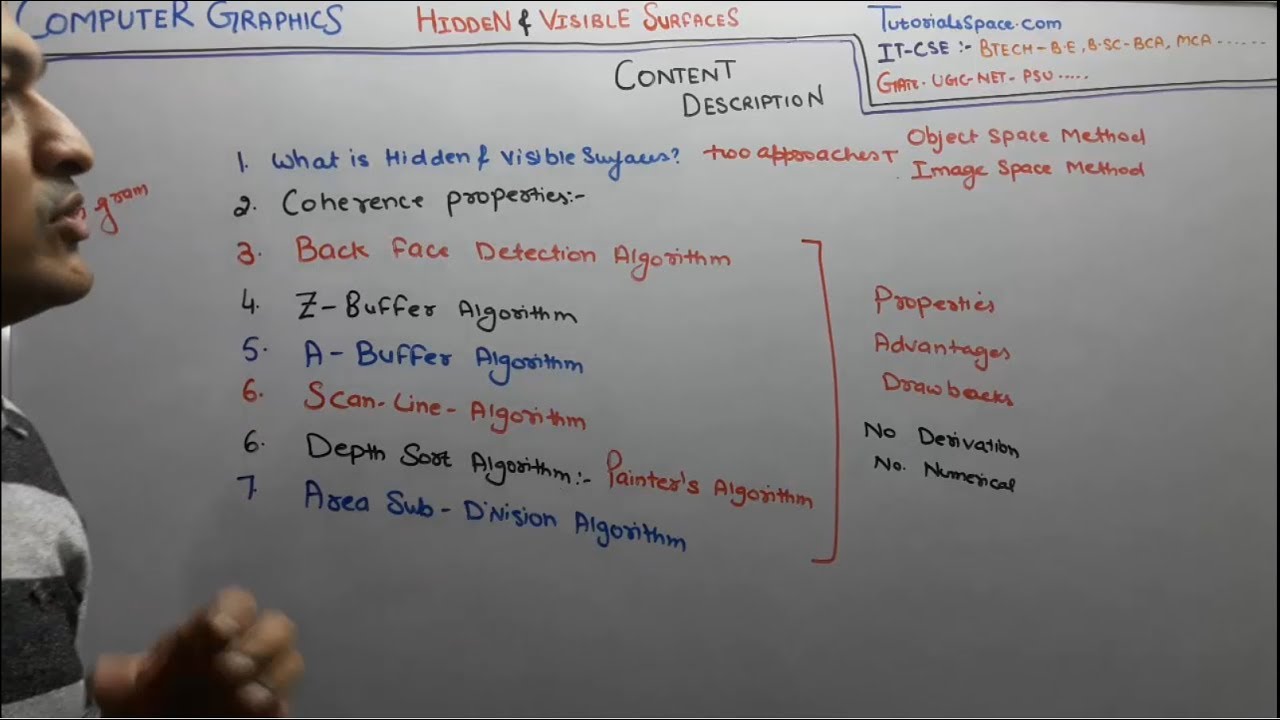 COMPUTER GRAPHICS
HIDDEN & VISIBLE SURFACES
TutorialsSpace.com
IT-CSE :- BTECH-B.E, B.SC-BCA, MCA ......
GATE. UGC-NET- PSU .....
CONTENT
DESCRIPTION
1. What is Hidden & Visible Surfaces? two approaches
Object Space Method
Image Space Method
gram
2. Coherence properties:-
3. Back Face Detection Algorithm
4. Z-Buffer Algorithm
5. A-Buffer Algorithm
6. Scan-Line-Algorithm
6. Depth Sort Algorithm:- Painter's Algorithm
7. Area Sub-Division Algorithm
Properties
Advantages
Drawbacks
No Derivation
No. Numerical